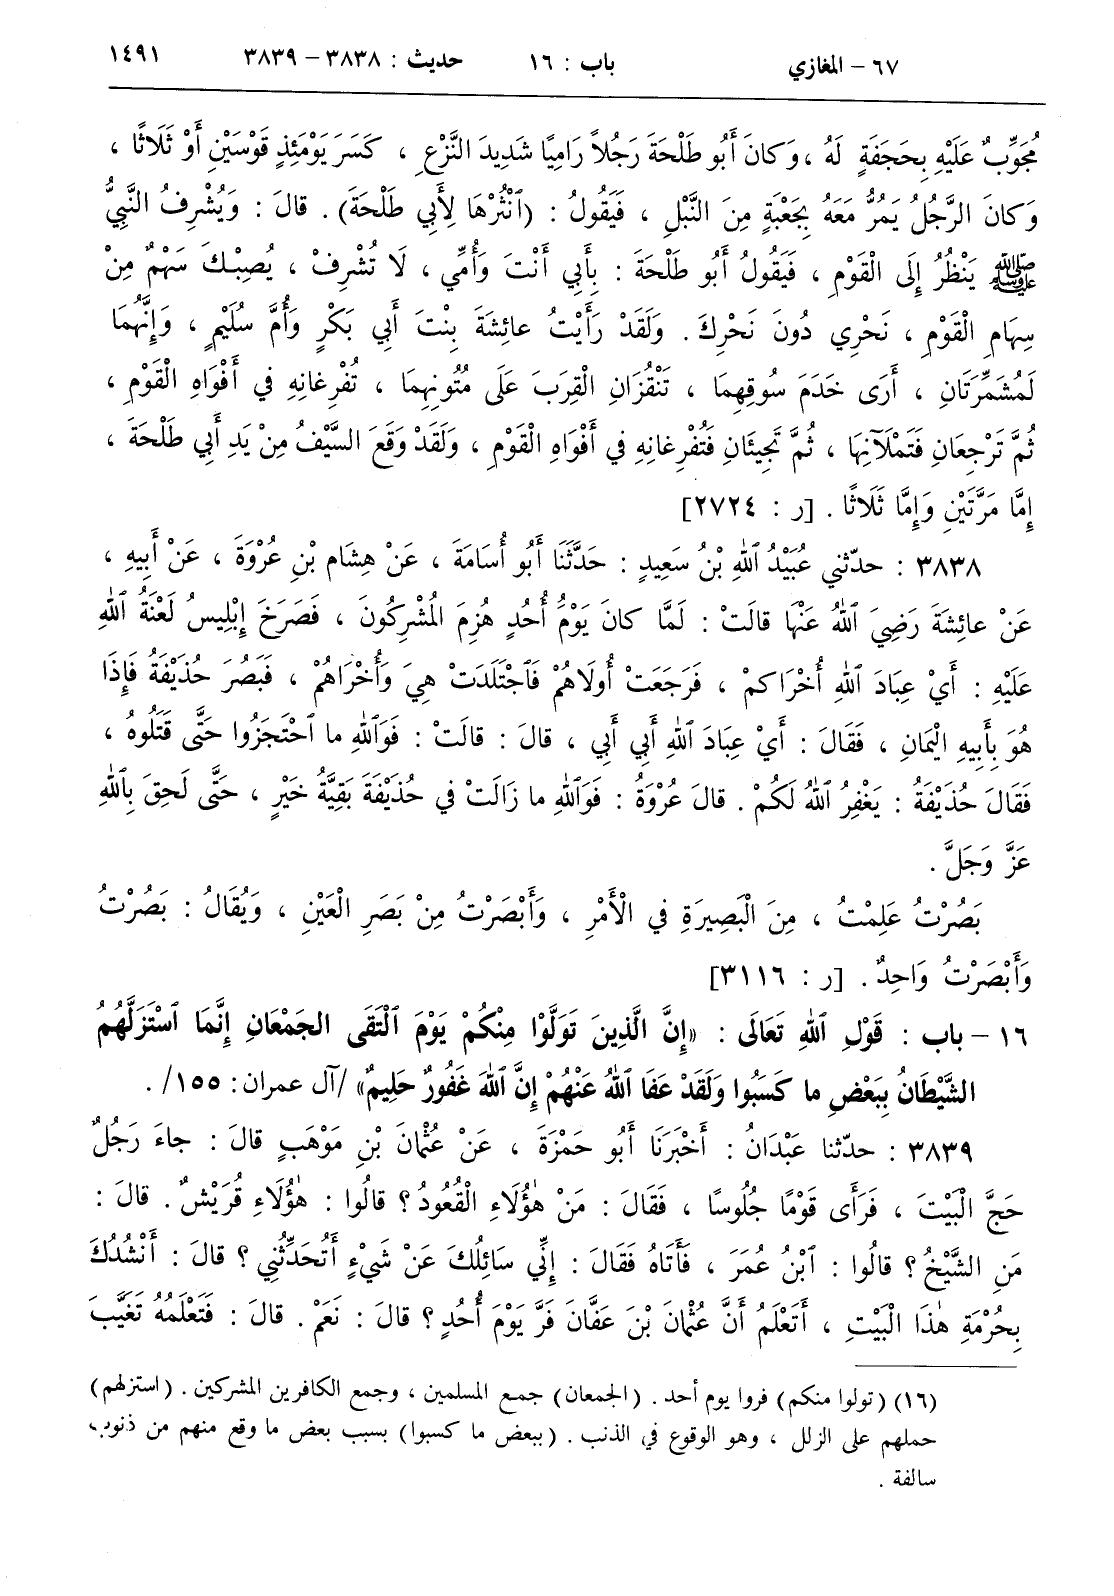 ٦٧ – المغازي    باب : ١٦    حديث : ٣٨٣٨ – ٣٨٣٩    ١٤٩١
مُجَوِّبٌ عَلَيْهِ بِحَجَفَةٍ لَهُ ، وَكانَ أَبُو طَلْحَةَ رَجُلاً رَامِيًا شَدِيدَ النَّزْعِ ، كَسَرَ يَوْمَئِذٍ قَوْسَيْنِ أَوْ ثَلَاثًا ،
وَكانَ الرَّجُلُ يَمُرُّ مَعَهُ بِجَعْبَةٍ مِنَ النَّبْلِ ، فَيَقُولُ : (ٱنْثُرْهَا لِأَبِي طَلْحَةَ) . قالَ : وَيُشْرِفُ النَّبِيُّ
ﷺ يَنْظُرُ إِلَى الْقَوْمِ ، فَيَقُولُ أَبُو طَلْحَةَ : بِأَبِي أَنْتَ وَأُمِّي ، لَا تُشْرِفْ ، يُصِبْكَ سَهْمٌ مِنْ
سِهَامِ الْقَوْمِ ، نَحْرِي دُونَ نَحْرِكَ . وَلَقَدْ رَأَيْتُ عائِشَةَ بِنْتَ أَبِي بَكْرٍ وَأُمَّ سُلَيْمٍ ، وَإِنَّهُمَا
لَمُشَمِّرَتَانِ ، أَرَى خَدَمَ سُوقِهِمَا ، تَنْقُزَانِ الْقِرَبَ عَلَى مُتُونِهِمَا ، تُفْرِغانِهِ فِي أَفْوَاهِ الْقَوْمِ ،
ثُمَّ تَرْجِعَانِ فَتَمْلَآنِهَا ، ثُمَّ تَجِيئَانِ فَتُفْرِغانِهِ فِي أَفْوَاهِ الْقَوْمِ ، وَلَقَدْ وَقَعَ السَّيْفُ مِنْ يَدِ أَبِي طَلْحَةَ ،
إِمَّا مَرَّتَيْنِ وَإِمَّا ثَلَاثًا . [ر : ٢٧٢٤]
٣٨٣٨ : حدّثني عُبَيْدُ ٱللهِ بْنُ سَعِيدٍ : حَدَّثَنَا أَبُو أُسَامَةَ ، عَنْ هِشَامِ بْنِ عُرْوَةَ ، عَنْ أَبِيهِ ،
عَنْ عائِشَةَ رَضِيَ ٱللهُ عَنْهَا قالَتْ : لَمَّا كانَ يَوْمُ أُحُدٍ هُزِمَ الْمُشْرِكُونَ ، فَصَرَخَ إِبْلِيسُ لَعْنَةُ ٱللهِ
عَلَيْهِ : أَيْ عِبَادَ ٱللهِ أُخْرَاكمْ ، فَرَجَعَتْ أُولَاهُمْ فَٱجْتَلَدَتْ هِيَ وَأُخْرَاهُمْ ، فَبَصُرَ حُذَيْفَةُ فَإِذَا
هُوَ بِأَبِيهِ الْيَمَانِ ، فَقَالَ : أَيْ عِبَادَ ٱللهِ أَبِي أَبِي ، قالَ : قالَتْ : فَوَٱللهِ ما ٱحْتَجَزُوا حَتَّى قَتَلُوهُ ،
فَقَالَ حُذَيْفَةُ : يَغْفِرُ ٱللهُ لَكُمْ . قالَ عُرْوَةُ : فَوَٱللهِ ما زَالَتْ فِي حُذَيْفَةَ بَقِيَّةُ خَيْرٍ ، حَتَّى لَحِقَ بِٱللهِ
عَزَّ وَجَلَّ .
بَصُرْتُ عَلِمْتُ ، مِنَ الْبَصِيرَةِ فِي الْأَمْرِ ، وَأَبْصَرْتُ مِنْ بَصَرِ الْعَيْنِ ، وَيُقَالُ : بَصُرْتُ
وَأَبْصَرْتُ وَاحِدٌ . [ر : ٣١١٦]
١٦ – باب : قَوْلِ ٱللهِ تَعَالَى : «إِنَّ الَّذِينَ تَوَلَّوْا مِنْكُمْ يَوْمَ ٱلْتَقَى الجَمْعَانِ إِنَّمَا ٱسْتَزَلَّهُمُ
الشَّيْطَانُ بِبَعْضِ ما كَسَبُوا وَلَقَدْ عَفَا ٱللهُ عَنْهُمْ إِنَّ ٱللهَ غَفُورٌ حَلِيمٌ» /آل عمران: ١٥٥/ .
٣٨٣٩ : حدّثنا عَبْدَانُ : أَخْبَرَنَا أَبُو حَمْزَةَ ، عَنْ عُثْمَانَ بْنِ مَوْهَبٍ قالَ : جاءَ رَجُلٌ
حَجَّ الْبَيْتَ ، فَرَأَى قَوْمًا جُلُوسًا ، فَقَالَ : مَنْ هٰؤُلَاءِ الْقُعُودُ ؟ قالُوا : هٰؤُلَاءِ قُرَيْشٌ . قالَ :
مَنِ الشَّيْخُ ؟ قالُوا : ٱبْنُ عُمَرَ ، فَأَتَاهُ فَقَالَ : إِنِّي سَائِلُكَ عَنْ شَيْءٍ أَتُحَدِّثُنِي ؟ قالَ : أَنْشُدُكَ
بِحُرْمَةِ هٰذَا الْبَيْتِ ، أَتَعْلَمُ أَنَّ عُثْمَانَ بْنَ عَفَّانَ فَرَّ يَوْمَ أُحُدٍ ؟ قالَ : نَعَمْ . قالَ : فَتَعْلَمُهُ تَغَيَّبَ
(١٦) (تولوا منكم) فروا يوم أحد . (الجمعان) جمع المسلمين ، وجمع الكافرين المشركين . (استزلهم)
حملهم على الزلل ، وهو الوقوع في الذنب . (ببعض ما كسبوا) بسبب بعض ما وقع منهم من ذنوب
سالفة .